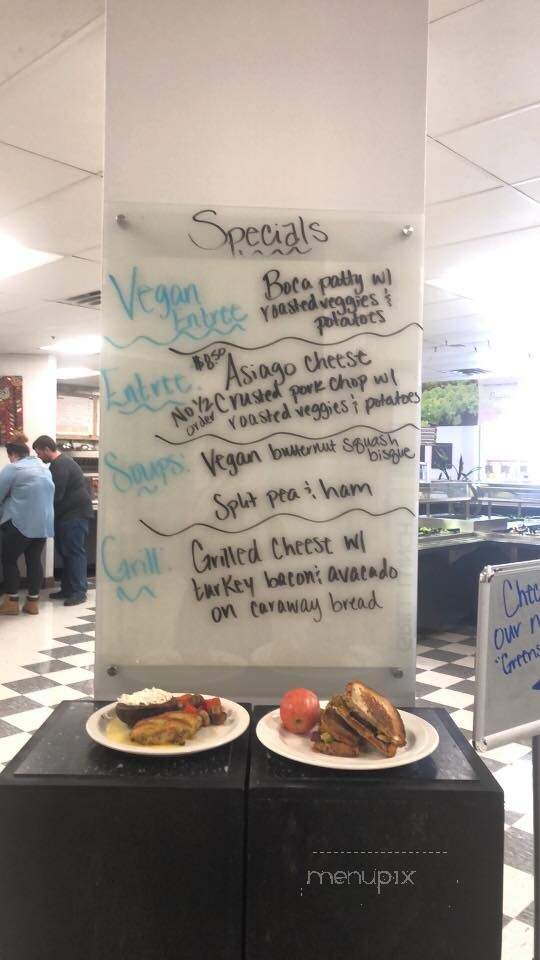 Specials
Vegan
Entree
Boca patty w/
roasted veggies &
potatoes
Entree:
$8.50
Asiago cheese
No 1/2
order
Crusted pork chop w/
roasted veggies & potatoes
Soups:
Vegan butternut squash
bisque
Split pea & ham
Grill:
Grilled Cheese w/
turkey bacon & avacado
on caraway bread
our
"Greens
menupix